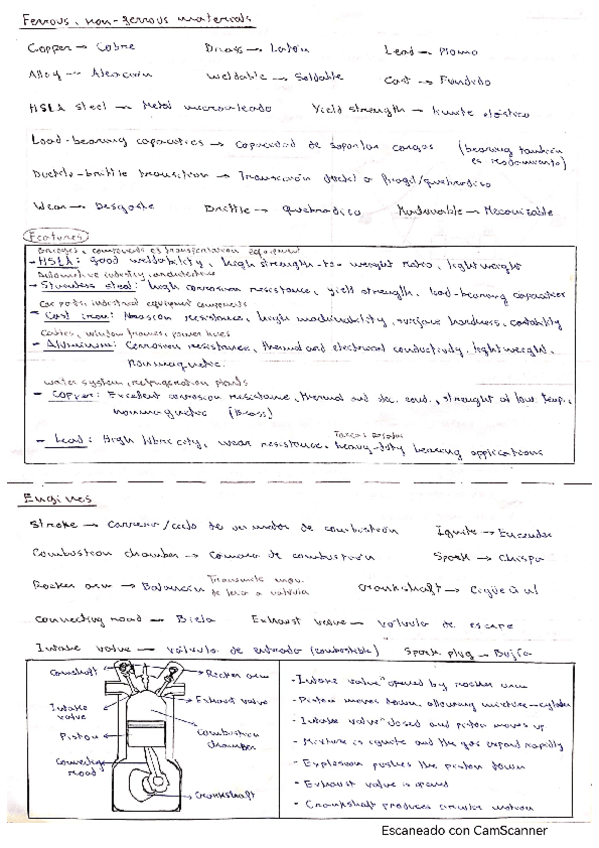 Ferrous, non-ferrous materials
Copper → Cobre Brass → Latón Lead → Plomo
Alloy → Aleación Weldable → Soldable Cast → Fundido
HSLA steel → Metal microaleado Yield strength → Límite elástico
Load-bearing capacities → capacidad de soportar cargas (bearing también es rodamiento)
Ductile-brittle transition → Transición dúctil a frágil/quebradiso
Wear → Desgaste Brittle → quebradiso Machinable → Mecanizable
Features
Bridges, components of transportation equipment
- HSLA: Good weldability, high strength-to-weight ratio, lightweight
Automotive industry, architecture
- Stainless steel: high corrosion resistance, yield strength, load-bearing capacities
Car parts, industrial equipment components
- Cast iron: Abrasion resistance, high machinability, surface hardness, castability
Cables, window frames, power lines
- Aluminum: Corrosion resistance, thermal and electrical conductivity, lightweight,
nonmagnetic.
water system, refrigeration plants
- Copper: Excellent corrosion resistance, thermal and elec. cond., strenght at low temp.,
nonmagnetic (Brass)
Tareas pesadas
- Lead: High lubricity, wear resistance, heavy-duty bearing applications
Engines
Stroke → Carrera/ciclo de un motor de combustión Ignite → Encender
Combustion chamber → Cámara de combustión Spark → Chispa
Rocker arm → Balancín Transmite mov. de leva a válvula Crankshaft → Cigüeñal
Connecting road → Biela Exhaust valve → válvula de escape
Intake valve → válvula de entrada (combustible) Spark plug → Bujía
Camshaft Rocker arm
Intake valve Exhaust valve
Piston Combustion chamber
Connecting road
Crankshaft
- "Intake valve" opened by rocker arm
- Piston moves down, allowing mixture → cylinder
- "Intake valve" closed and piston moves up
- Mixture is ignite and the gas expand rapidly
- Explosion pushes the piston down
- Exhaust valve is opened
- Crankshaft produces circular motion
Escaneado con CamScanner